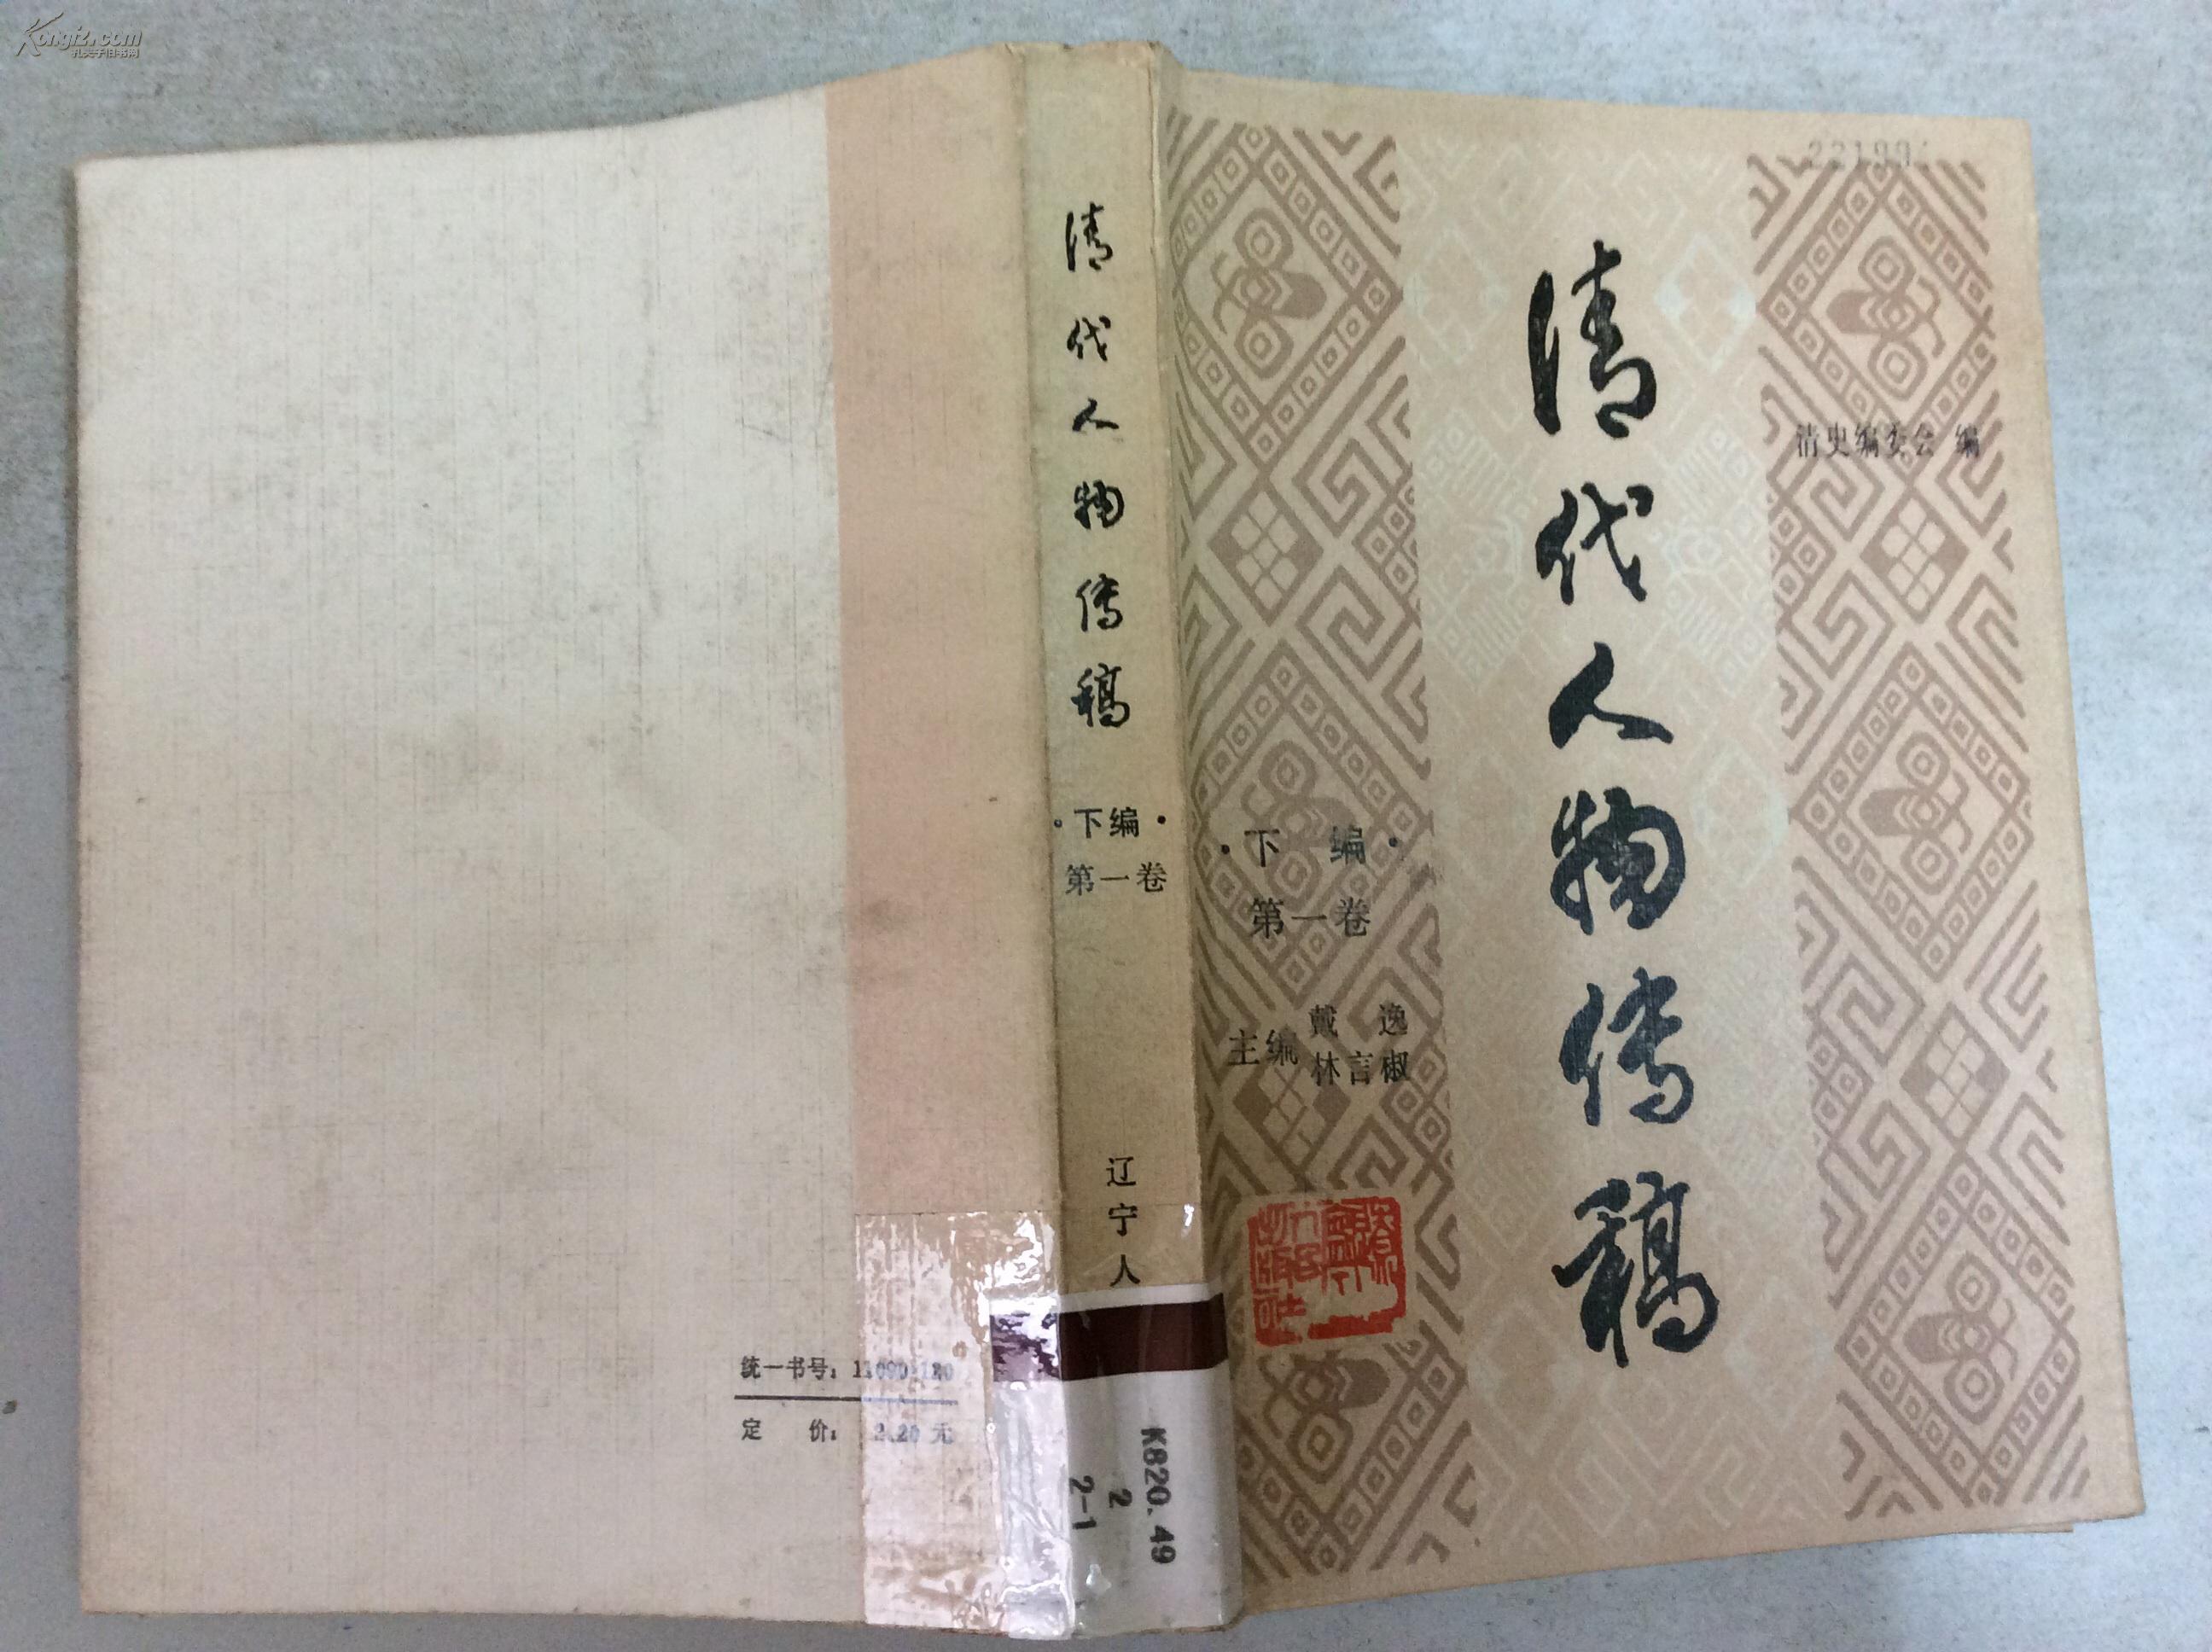 Kongfz.com
孔夫子旧书网
清代人物传稿
·下编·
第一卷
辽宁人
K820.49
2
2-1
清代人物传稿
清史编委会 编
·下 编·
第一卷
主编
戴 逸
林言椒
遼寧人民出版社
统一书号：
定 价： 2.20 元